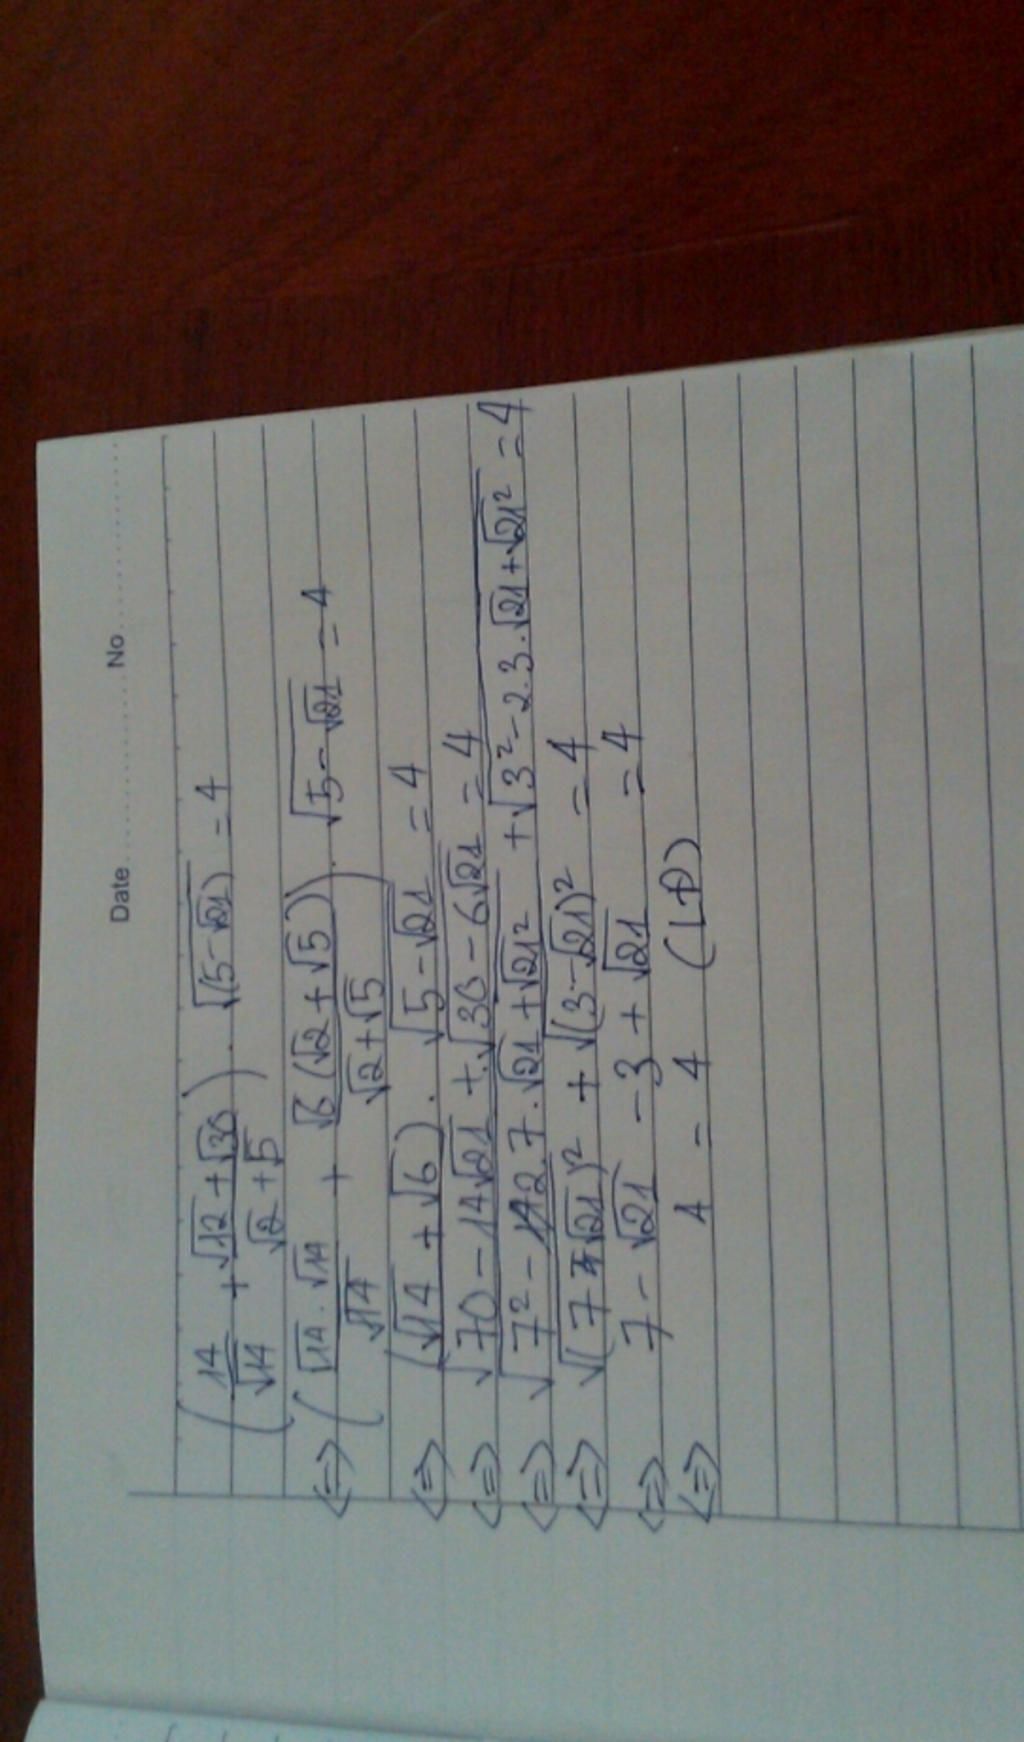 Date No
(14/√14 + (√12 + √30)/(√2 + √5)) . √(5 - √21) = 4
<=> ((√14 . √14)/√14 + √6(√2 + √5)/(√2 + √5)) . √(5 - √21) = 4
<=> (√14 + √6) . √(5 - √21) = 4
<=> √(70 - 14√21) + √(30 - 6√21) = 4
<=> √(7² - 2.7.√21 + √21²) + √(3² - 2.3.√21 + √21²) = 4
<=> √(7 - √21)² + √(3 - √21)² = 4
<=> 7 - √21 - 3 + √21 = 4
<=> 4 = 4 (LĐ)